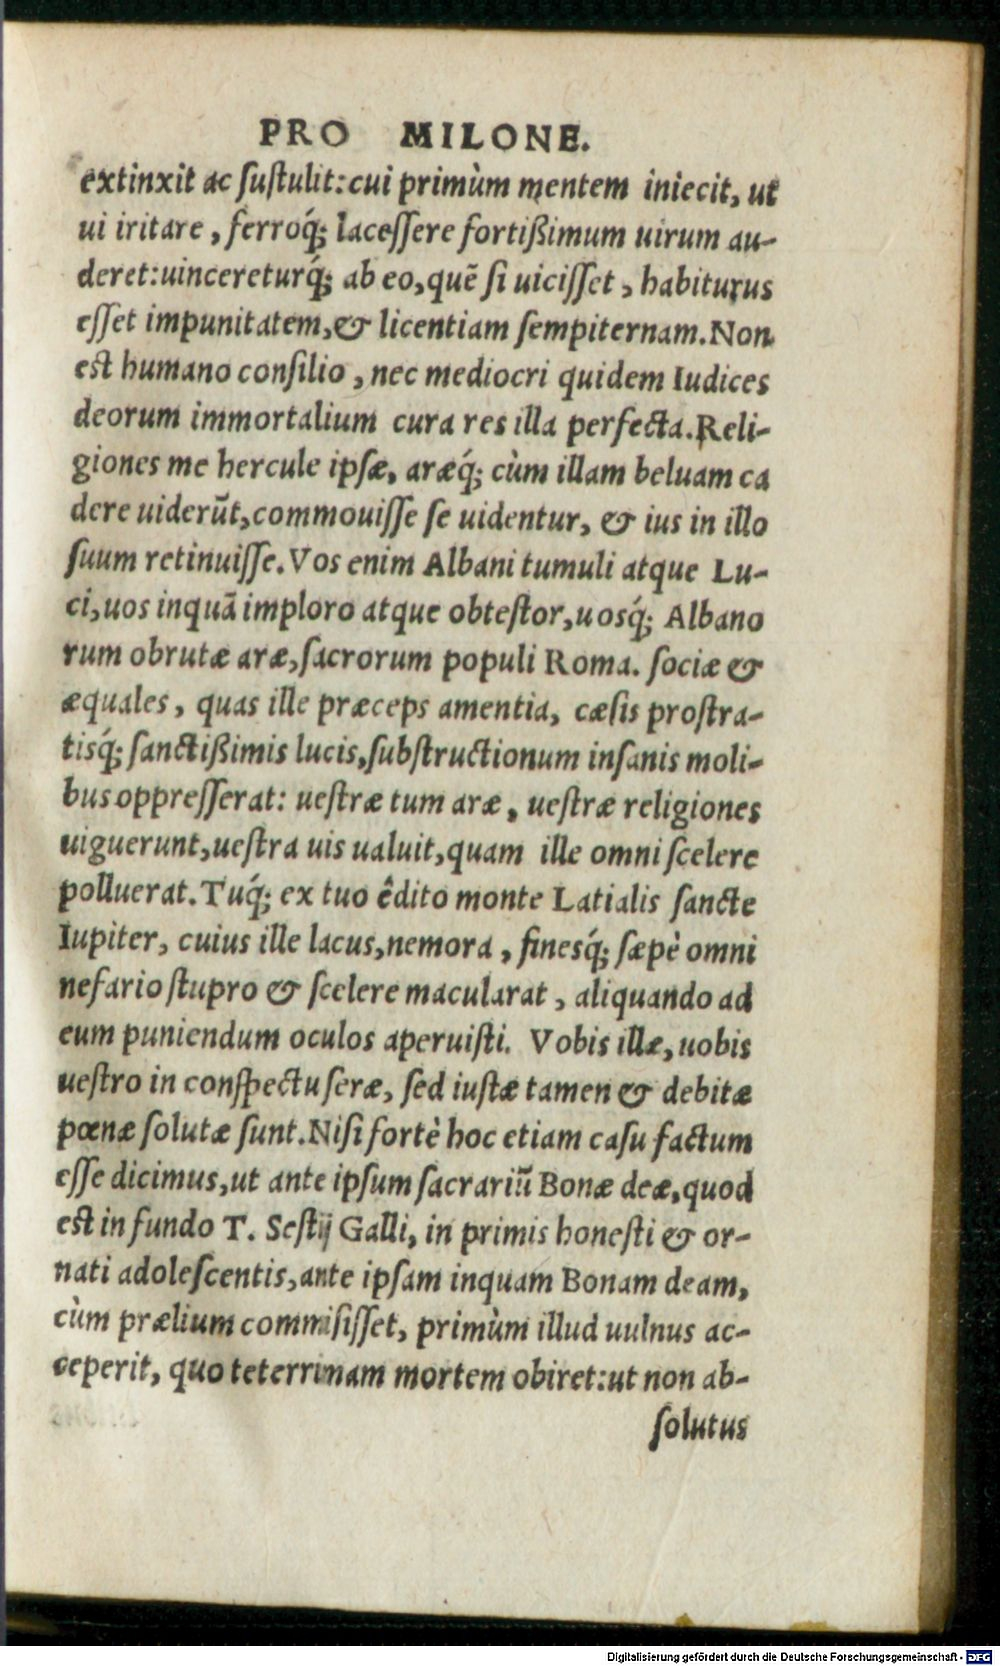 PRO MILONE.
extinxit ac ſuſtulit: cui primùm mentem iniecit, ut
ui iritare, ferroq́; laceſſere fortißimum uirum au-
deret: uincereturq́; ab eo, quẽ ſi uiciſſet, habiturus
eſſet impunitatem, & licentiam ſempiternam. Non
est humano conſilio, nec mediocri quidem Iudices
deorum immortalium cura res illa perfecta. Reli-
giones me hercule ipſæ, aræq́; cùm illam beluam ca
dere uiderũt, commouiſſe ſe uidentur, & ius in illo
ſuum retinuiſſe. Vos enim Albani tumuli atque Lu-
ci, uos inquã imploro atque obteſtor, uosq́; Albano
rum obrutæ aræ, ſacrorum populi Roma. ſociæ &
æquales, quas ille præceps amentia, cæſis proſtra-
tisq́; ſanctißimis lucis, ſubſtructionum inſanis moli-
bus oppreſſerat: ueſtræ tum aræ, ueſtræ religiones
uiguerunt, ueſtra uis ualuit, quam ille omni ſcelere
polluerat. Tuq́; ex tuo êdito monte Latialis ſancte
Iupiter, cuius ille lacus, nemora, finesq́; ſæpè omni
nefario ſtupro & ſcelere macularat, aliquando ad
eum puniendum oculos aperuiſti. Vobis illæ, uobis
ueſtro in conſpectu ſeræ, ſed iuſtæ tamen & debitæ
pœnæ ſolutæ ſunt. Niſi fortè hoc etiam caſu factum
eſſe dicimus, ut ante ipſum ſacrariũ Bonæ deæ, quod
est in fundo T. Seſtij Galli, in primis honeſti & or-
nati adoleſcentis, ante ipſam inquam Bonam deam,
cùm prælium commiſiſſet, primùm illud uulnus ac-
ceperit, quo teterrimam mortem obiret: ut non ab-
ſolutus
Digitalisierung gefördert durch die Deutsche Forschungsgemeinschaft - DFG